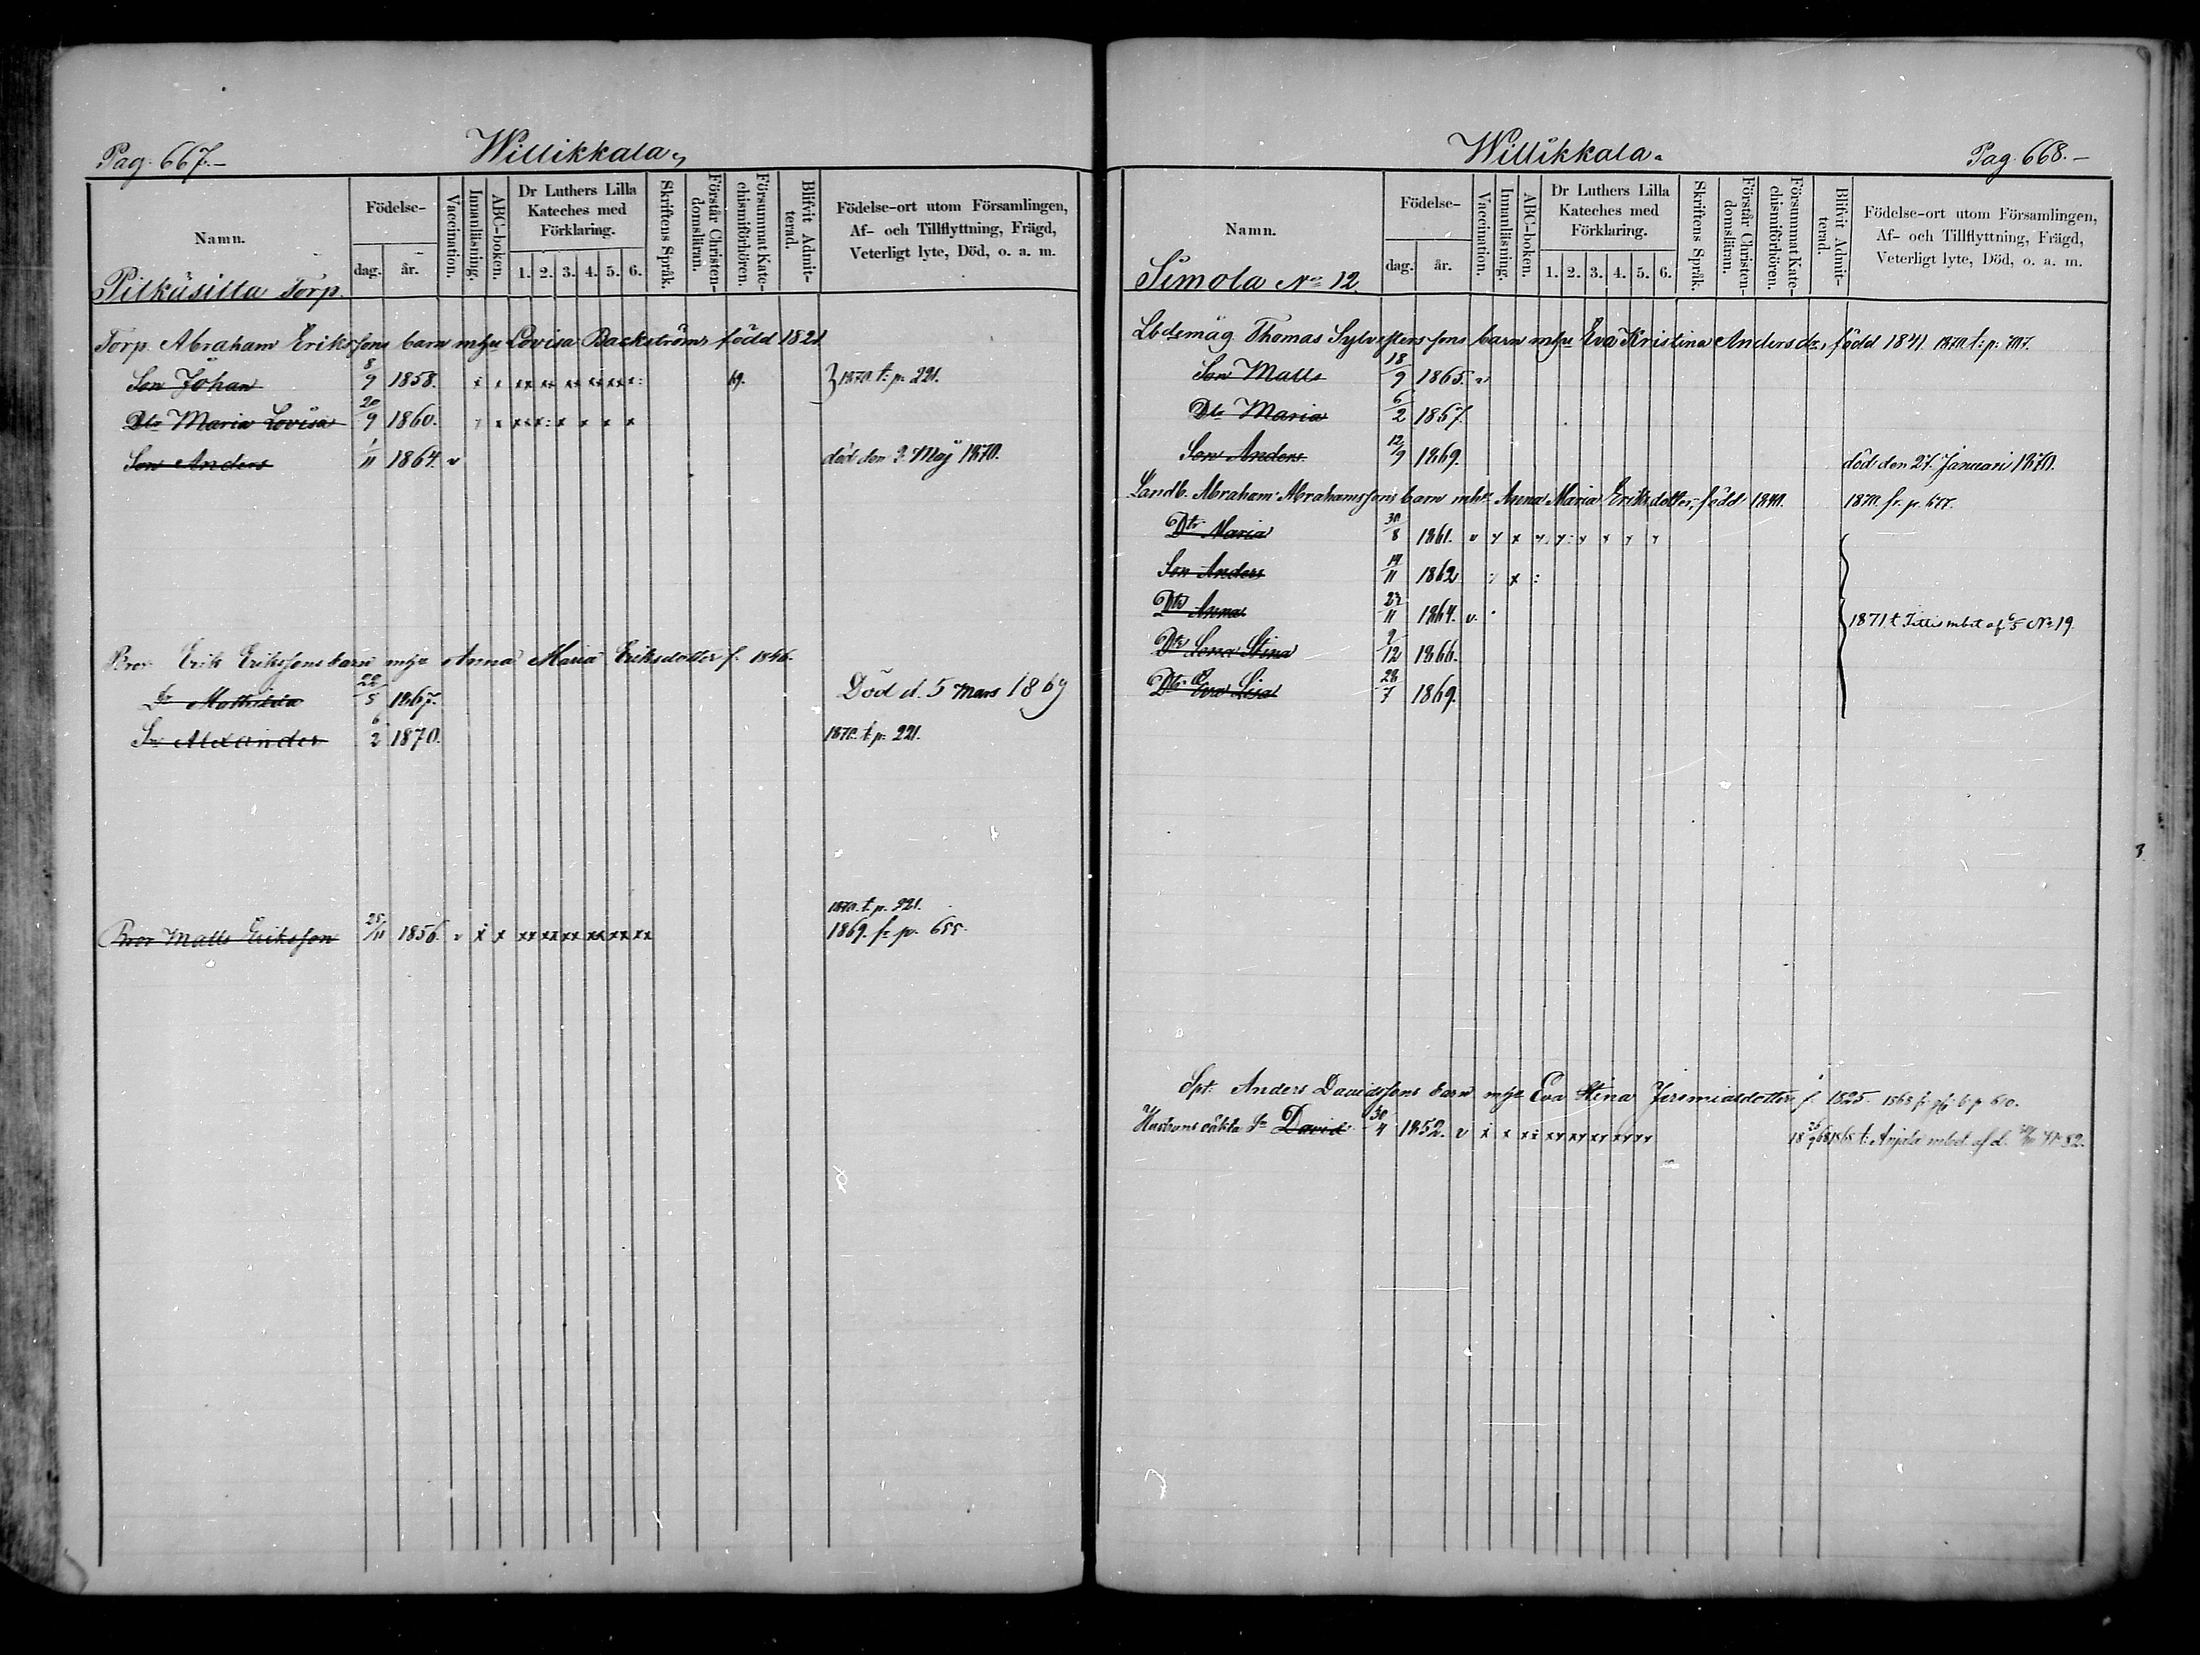 Pag. 667.
Willikkala
Namn.
Födelse-
dag.
år.
Vaccination.
Innanläsning.
ABC-boken.
Dr Luthers Lilla
Kateches med
Förklaring.
1. 2. 3. 4. 5. 6.
Skriftens Språk.
Förstår Christen-
domsläran.
Försummat Kate-
chismiförhören.
Blifvit Admit-
terad.
Födelse-ort utom Församlingen,
Af- och Tillflyttning, Frägd,
Veterligt lyte, Död, o. a. m.
Pitkäsilta Torp.
Torp. Abraham Erikssons barn Lovisa Backström född 1821
Son Johan 8/9 1858. 1870. t. p. 221.
Dtr Maria Lovisa 20/9 1860.
Son Anders 1/11 1864. v död den 2. Maj 1870.
Bror Erik Erikssons barn Anna Maria Eriksdotter f. 1846.
Dr Mathilda 22/5 1867. Död d. 5 mars 1869
Sn Alexander 6/2 1870. 1870. t. p. 221.
1870. t. p. 221.
Bror Matts Eriksson 25/11 1856. v x x xx xx xx xx xx xx 1869. fr p. 655.
Willikkala.
Pag. 668.
Namn.
Födelse-
dag.
år.
Vaccination.
Innanläsning.
ABC-boken.
Dr Luthers Lilla
Kateches med
Förklaring.
1. 2. 3. 4. 5. 6.
Skriftens Språk.
Förstår Christen-
domsläran.
Försummat Kate-
chismiförhören.
Blifvit Admit-
terad.
Födelse-ort utom Församlingen,
Af- och Tillflyttning, Frägd,
Veterligt lyte, Död, o. a. m.
Simola No 12.
Thomas Sylvesterssons barn Eva Kristina Andersdr, född 1841. 1870. t. p. 707.
Son Matts 18/9 1865. v
Dtr Maria 6/2 1867.
Son Anders 12/9 1869. död den 27. Januari 1870.
Landb. Abraham Abrahamssons barn Anna Maria Eriksdotter, född 1840. 1870. fr. p. 677.
Dtr Maria 30/8 1861. v
Son Anders 19/11 1862
Dtr Anna 1864. v.
1871 t. Ittis mbet af 6/5 No 19.
Dtr Lena Stina 9/12 1866.
Dtr Eva Lisa 28/7 1869.
Spt. Anders Davidssons barn Eva Stina Jeremiasdotter f. 1825.
Hustruns oäkta Sn David 30/4 1852. v t. Anjala mbet af d. No 82.